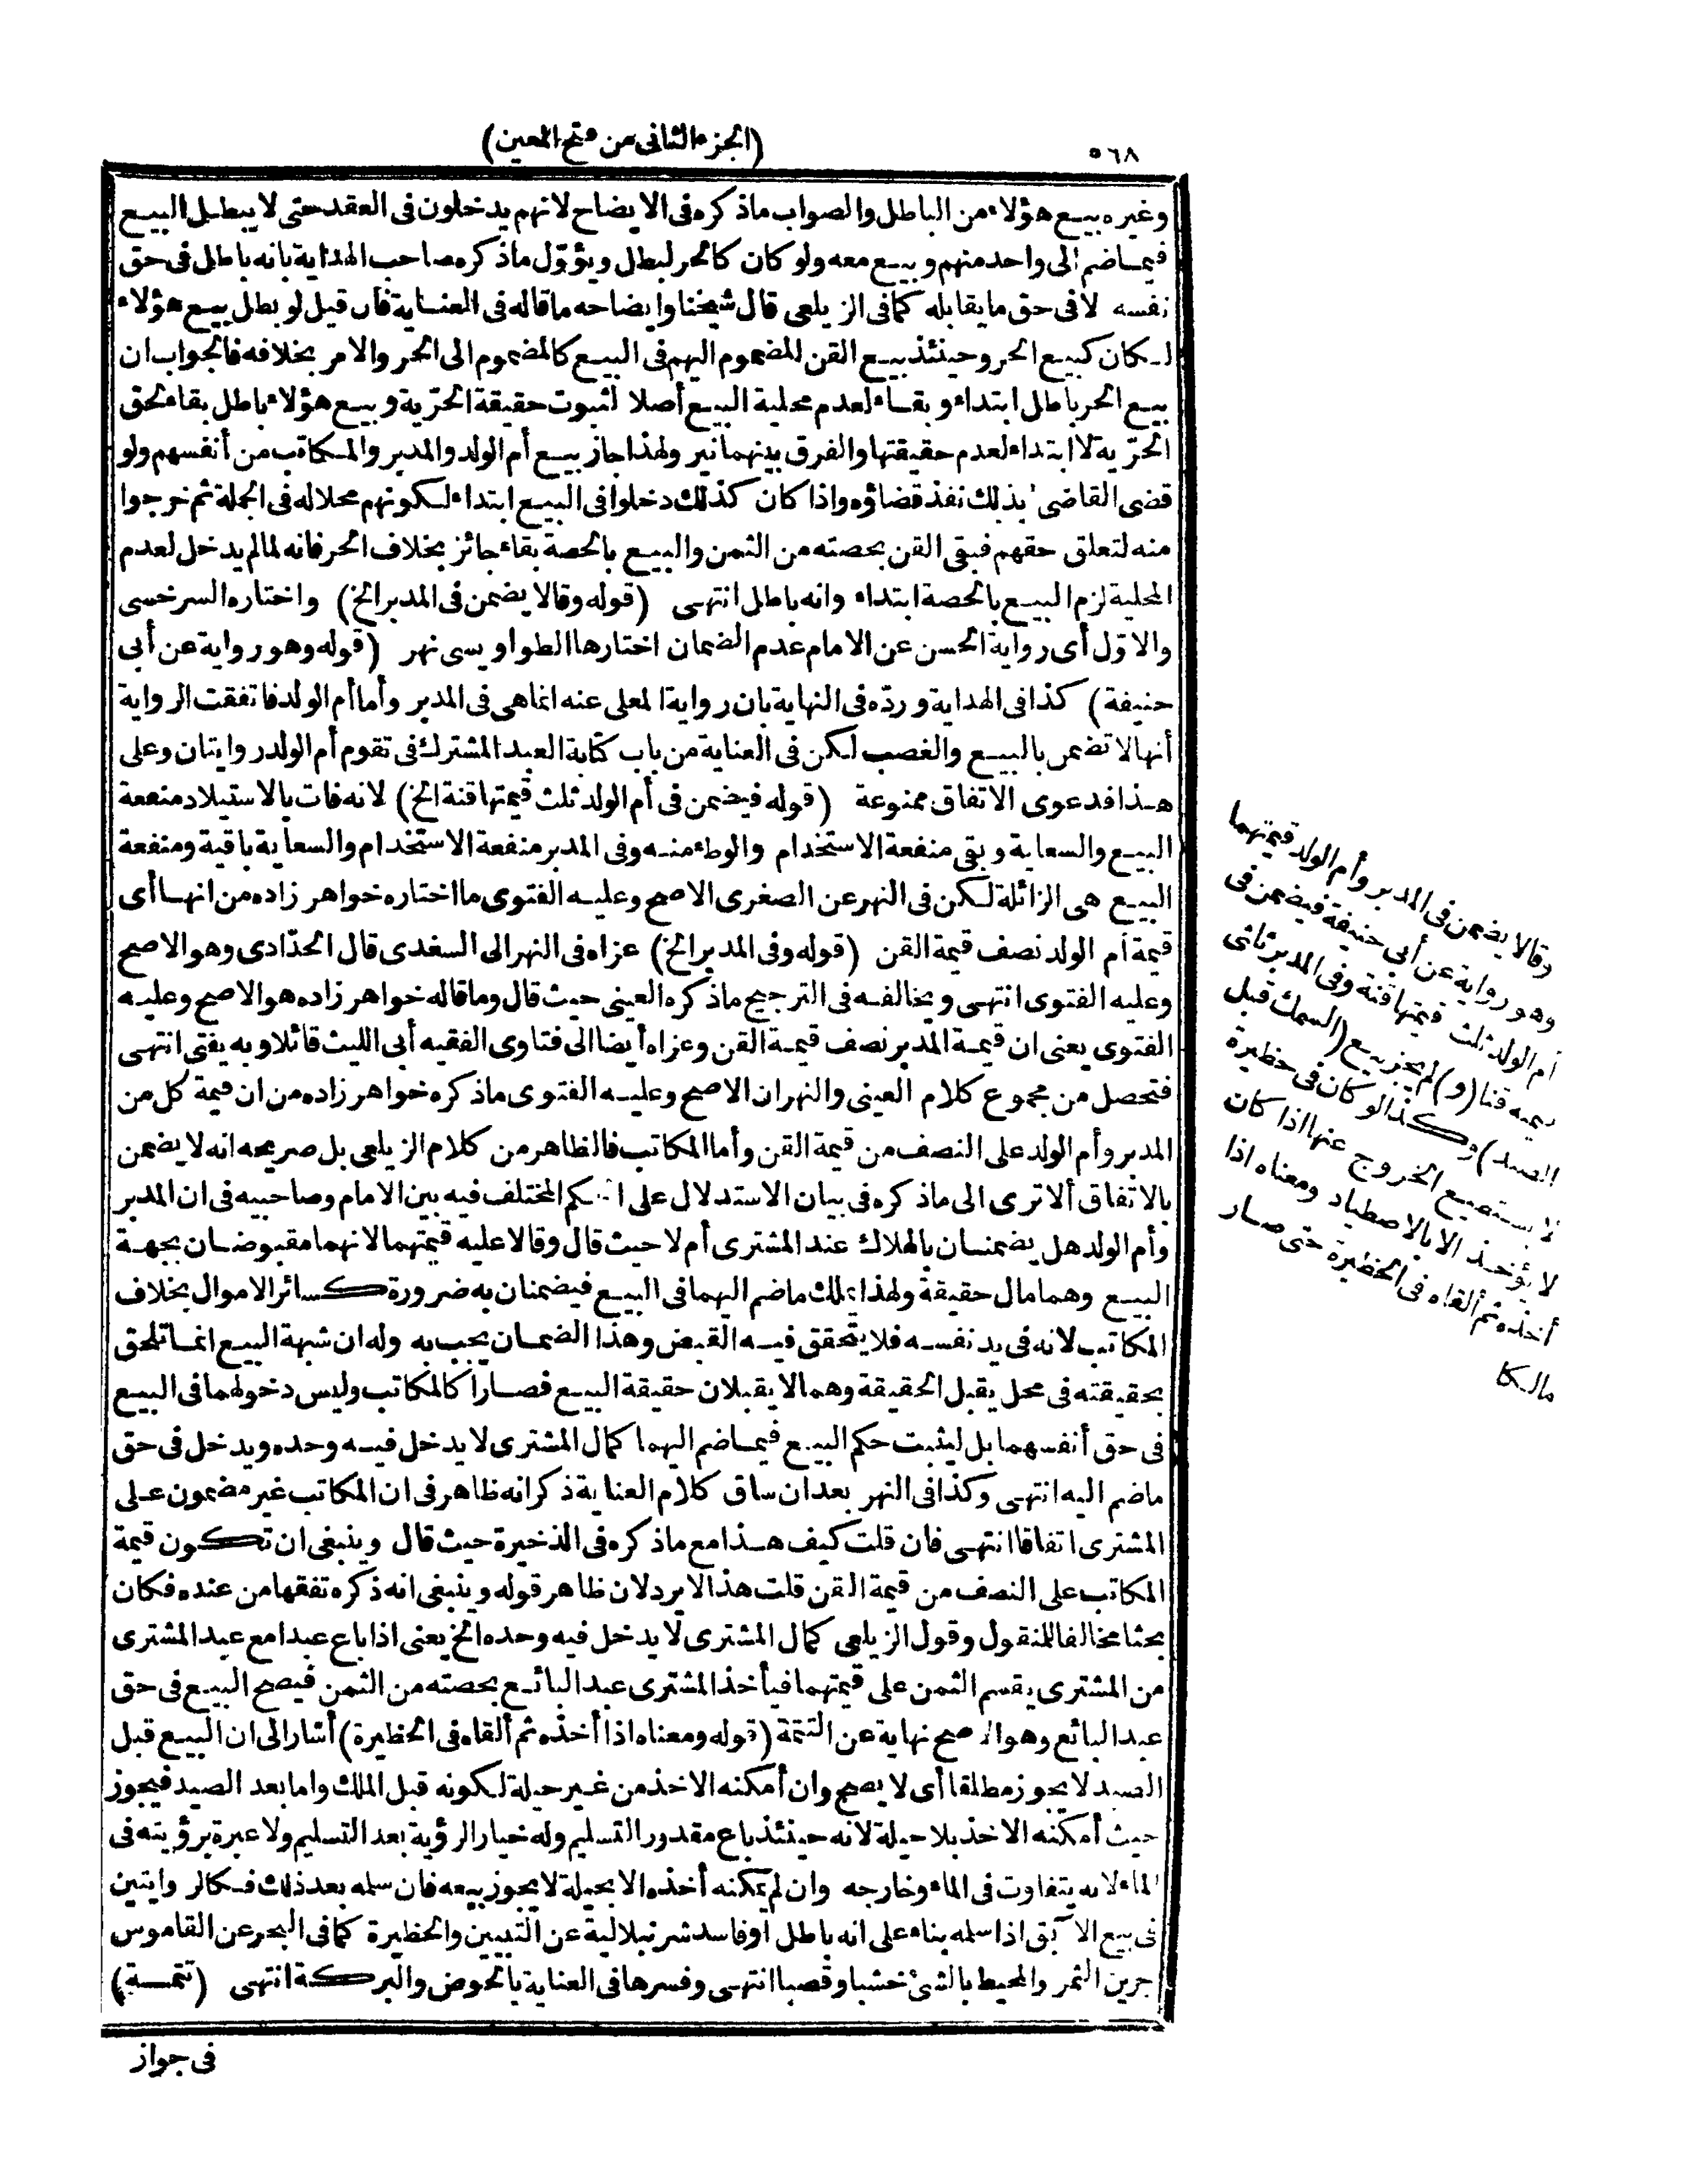 ٥٦٨
(الجزء الثانى من فتح المعين)
وغيره بيع هؤلاء من الباطل والصواب ماذكره فى الايضاح لانهم يدخلون فى العقد حتى لا يبطل البيع
فيما ضم الى واحد منهم وبيع معه ولو كان كالحر لبطل ويؤوّل ماذكره صاحب الهداية بانه باطل فى حق
نفسه لا فى حق ما يقابله كما فى الزيلعى قال شيخنا وايضاحه ما قاله فى العناية فان قيل لو بطل بيع هؤلاء
لكان كبيع الحر وحينئذ بيع القن المضموم اليهم فى البيع كالمضموم الى الحر والامر بخلافه فالجواب ان
بيع الحر باطل ابتداء وبقاء لعدم محلية البيع أصلا لثبوت حقيقة الحرّية وبيع هؤلاء باطل بقاء لحق
الحرّية لا ابتداء لعدم حقيقتها والفرق بينهما نير ولهذا جاز بيع أم الولد والمدبر والمكاتب من أنفسهم ولو
قضى القاضى بذلك نفذ قضاؤه واذا كان كذلك دخلوا فى البيع ابتداء لكونهم محلا له فى الجملة ثم خرجوا
منه لتعلق حقهم فبقى القن بحصته من الثمن والبيع بالحصة بقاء جائز بخلاف الحر فانه لما لم يدخل لعدم
المحلية لزم البيع بالحصة ابتداء وانه باطل انتهى (قوله وقالا يضمن فى المدبر الخ) واختاره السرخسى
والاوّل أى رواية الحسن عن الامام عدم الضمان اختارها الطواويسى نهر (قوله وهو رواية عن أبى
حنيفة) كذا فى الهداية وردّه فى النهاية بان رواية المعلى عنه انما هى فى المدبر وأما أم الولد فاتفقت الرواية
أنها لا تضمن بالبيع والغصب لكن فى العناية من باب كتابة العبد المشترك فى تقوم أم الولد روايتان وعلى
هذا فدعوى الاتفاق ممنوعة (قوله فيضمن فى أم الولد ثلث قيمتها قنة الخ) لانه فات بالاستيلاد منفعة
البيع والسعاية وبقى منفعة الاستخدام والوطء منه وفى المدبر منفعة الاستخدام والسعاية باقية ومنفعة
البيع هى الزائلة لكن فى النهر عن الصغرى الاصح وعليه الفتوى ما اختاره خواهر زاده من انها أى
قيمة أم الولد نصف قيمة القن (قوله وفى المدبر الخ) عزاه فى النهر الى السغدى قال الحدّادى وهو الاصح
وعليه الفتوى انتهى ويخالفه فى الترجيح ماذكره العينى حيث قال وما قاله خواهر زاده هو الاصح وعليه
الفتوى يعنى ان قيمة المدبر نصف قيمة القن وعزاه أيضا الى فتاوى الفقيه أبى الليث قائلا وبه يفتى انتهى
فتحصل من مجموع كلام العينى والنهر ان الاصح وعليه الفتوى ماذكره خواهر زاده من ان قيمة كل من
المدبر وأم الولد على النصف من قيمة القن وأما المكاتب فالظاهر من كلام الزيلعى بل صريحه انه لا يضمن
بالاتفاق ألا ترى الى ماذكره فى بيان الاستدلال على الحكم المختلف فيه بين الامام وصاحبيه فى ان المدبر
وأم الولد هل يضمنان بالهلاك عند المشترى أم لا حيث قال وقالا عليه قيمتهما لانهما مقبوضان بجهة
البيع وهما مال حقيقة ولهذا يملك ما ضم اليهما فى البيع فيضمنان به ضرورة كسائر الاموال بخلاف
المكاتب لانه فى يد نفسه فلا يتحقق فيه القبض وهذا الضمان يجب به وله ان شبهة البيع انما تلحق
بحقيقته فى محل يقبل الحقيقة وهما لا يقبلان حقيقة البيع فصارا كالمكاتب وليس دخولهما فى البيع
فى حق أنفسهما بل ليثبت حكم البيع فيما ضم اليهما كمال المشترى لا يدخل فيه وحده ويدخل فى حق
ما ضم اليه انتهى وكذا فى النهر بعد ان ساق كلام العناية ذكر انه ظاهر فى ان المكاتب غير مضمون على
المشترى اتفاقا انتهى فان قلت كيف هذا مع ماذكره فى الذخيرة حيث قال وينبغى ان تكون قيمة
المكاتب على النصف من قيمة القن قلت هذا لا يرد لان ظاهر قوله وينبغى انه ذكره تفقها من عنده فكان
بحثا مخالفا للمنقول وقول الزيلعى كمال المشترى لا يدخل فيه وحده الخ يعنى اذا باع عبدا مع عبد المشترى
من المشترى يقسم الثمن على قيمتهما فيأخذ المشترى عبد البائع بحصته من الثمن فيصح البيع فى حق
عبد البائع وهو الصحيح نهاية عن التتمة (قوله ومعناه اذا أخذه ثم ألقاه فى الحظيرة) أشار الى ان البيع قبل
الصيد لا يجوز مطلقا أى لا يصح وان أمكنه الاخذ من غير حيلة لكونه قبل الملك واما بعد الصيد فيجوز
حيث أمكنه الاخذ بلا حيلة لانه حينئذ باع مقدور التسليم وله خيار الرؤية بعد التسليم ولا عبرة برؤيته فى
الماء لانه يتفاوت فى الماء وخارجه وان لم يمكنه أخذه الا بحيلة لا يجوز بيعه فان سلمه بعد ذلك فكالروايتين
فى بيع الآبق اذا سلمه بناء على انه باطل أو فاسد شرنبلالية عن التبيين والحظيرة كما فى البحر عن القاموس
جرين الثمر والمحيط بالشئ خشبا وقصبا انتهى وفسرها فى العناية بالحوض والبركة انتهى (تتمة)
فى جواز
وقالا يضمن فى المدبر وأم الولد قيمتهما
وهو رواية عن أبى حنيفة فيضمن فى
أم الولد ثلث قيمتها قنة وفى المدبر ثلثى
قيمته قنا (و) لم يجز بيع (السمك قبل
الصيد) وكذا لو كان فى حظيرة
لا يستطيع الخروج عنها اذا كان
لا يؤخذ الا بالاصطياد ومعناه اذا
أخذه ثم ألقاه فى الحظيرة حتى صار
مالكا